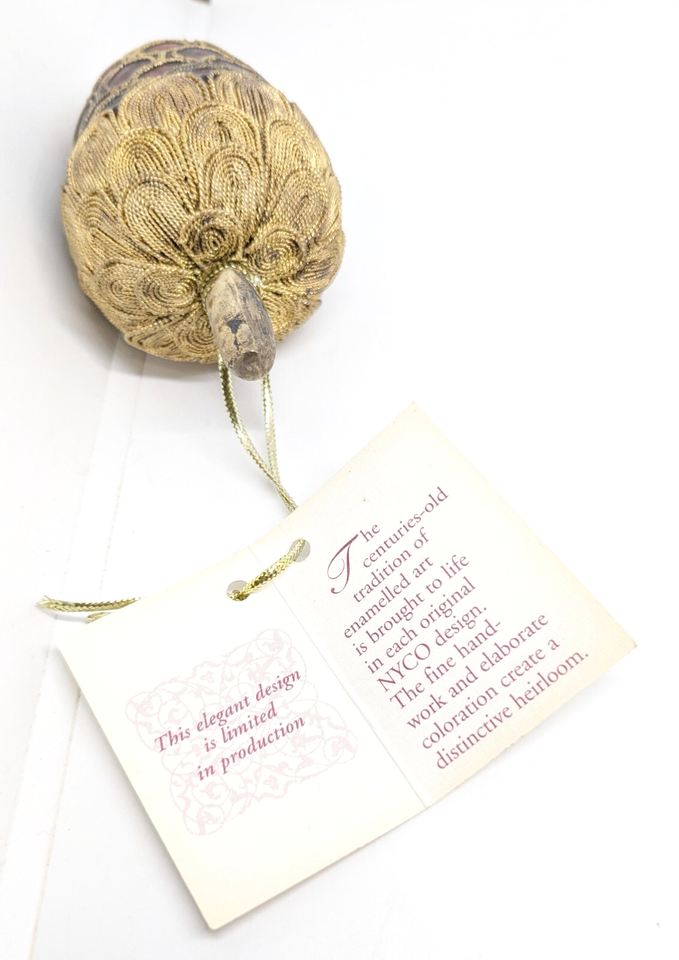 This elegant design
is limited
in production
The
centuries-old
tradition of
enamelled art
is brought to life
in each original
NYCO design.
The fine hand-
work and elaborate
coloration create a
distinctive heirloom.